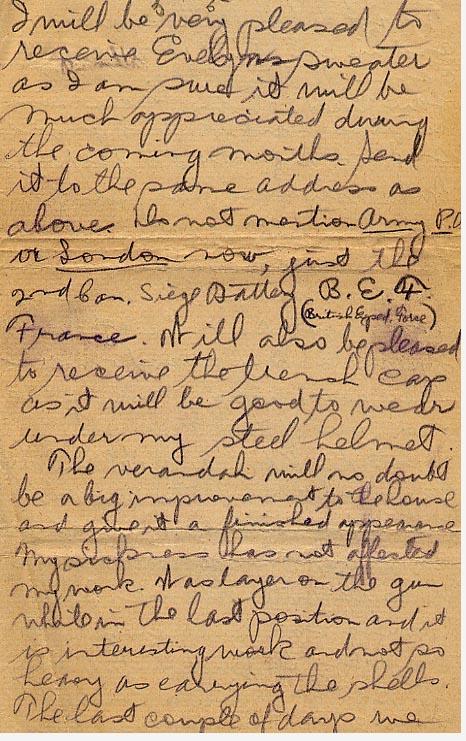 I will be very pleased to
receive Evelyns sweater
as I am sure it will be
much appreciated during
the coming months. Send
it to the same address as
above. Do not mention Army P.O
or London now, just the
2nd Can. Siege Battery B.E.F.
(British Exped. Force)
France. Will also be pleased
to receive the trench cap
as it will be good to wear
under my steel helmet.
The verandah will no doubt
be a big improvement to the house
and give it a finished appearance
My sickness has not affected
my work. Was layer on the gun
while in the last position and it
is interesting work and not so
heavy as carrying the shells.
The last couple of days we